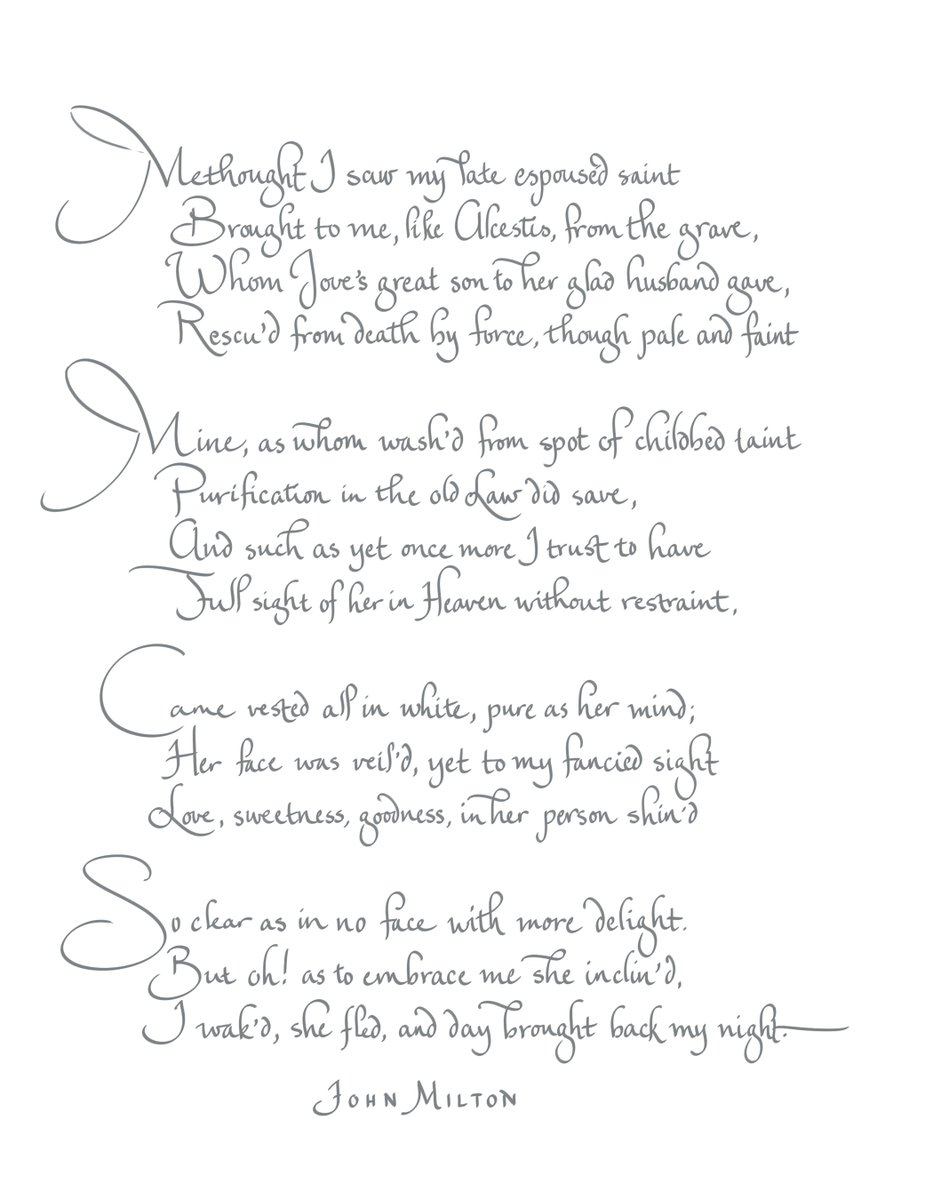 Methought I saw my late espousèd saint
Brought to me, like Alcestis, from the grave,
Whom Jove's great son to her glad husband gave,
Rescu'd from death by force, though pale and faint
Mine, as whom wash'd from spot of childbed taint
Purification in the old Law did save,
And such as yet once more I trust to have
Full sight of her in Heaven without restraint,
Came vested all in white, pure as her mind;
Her face was veil'd, yet to my fancied sight
Love, sweetness, goodness, in her person shin'd
So clear as in no face with more delight.
But oh! as to embrace me she inclin'd,
I wak'd, she fled, and day brought back my night.
JOHN MILTON